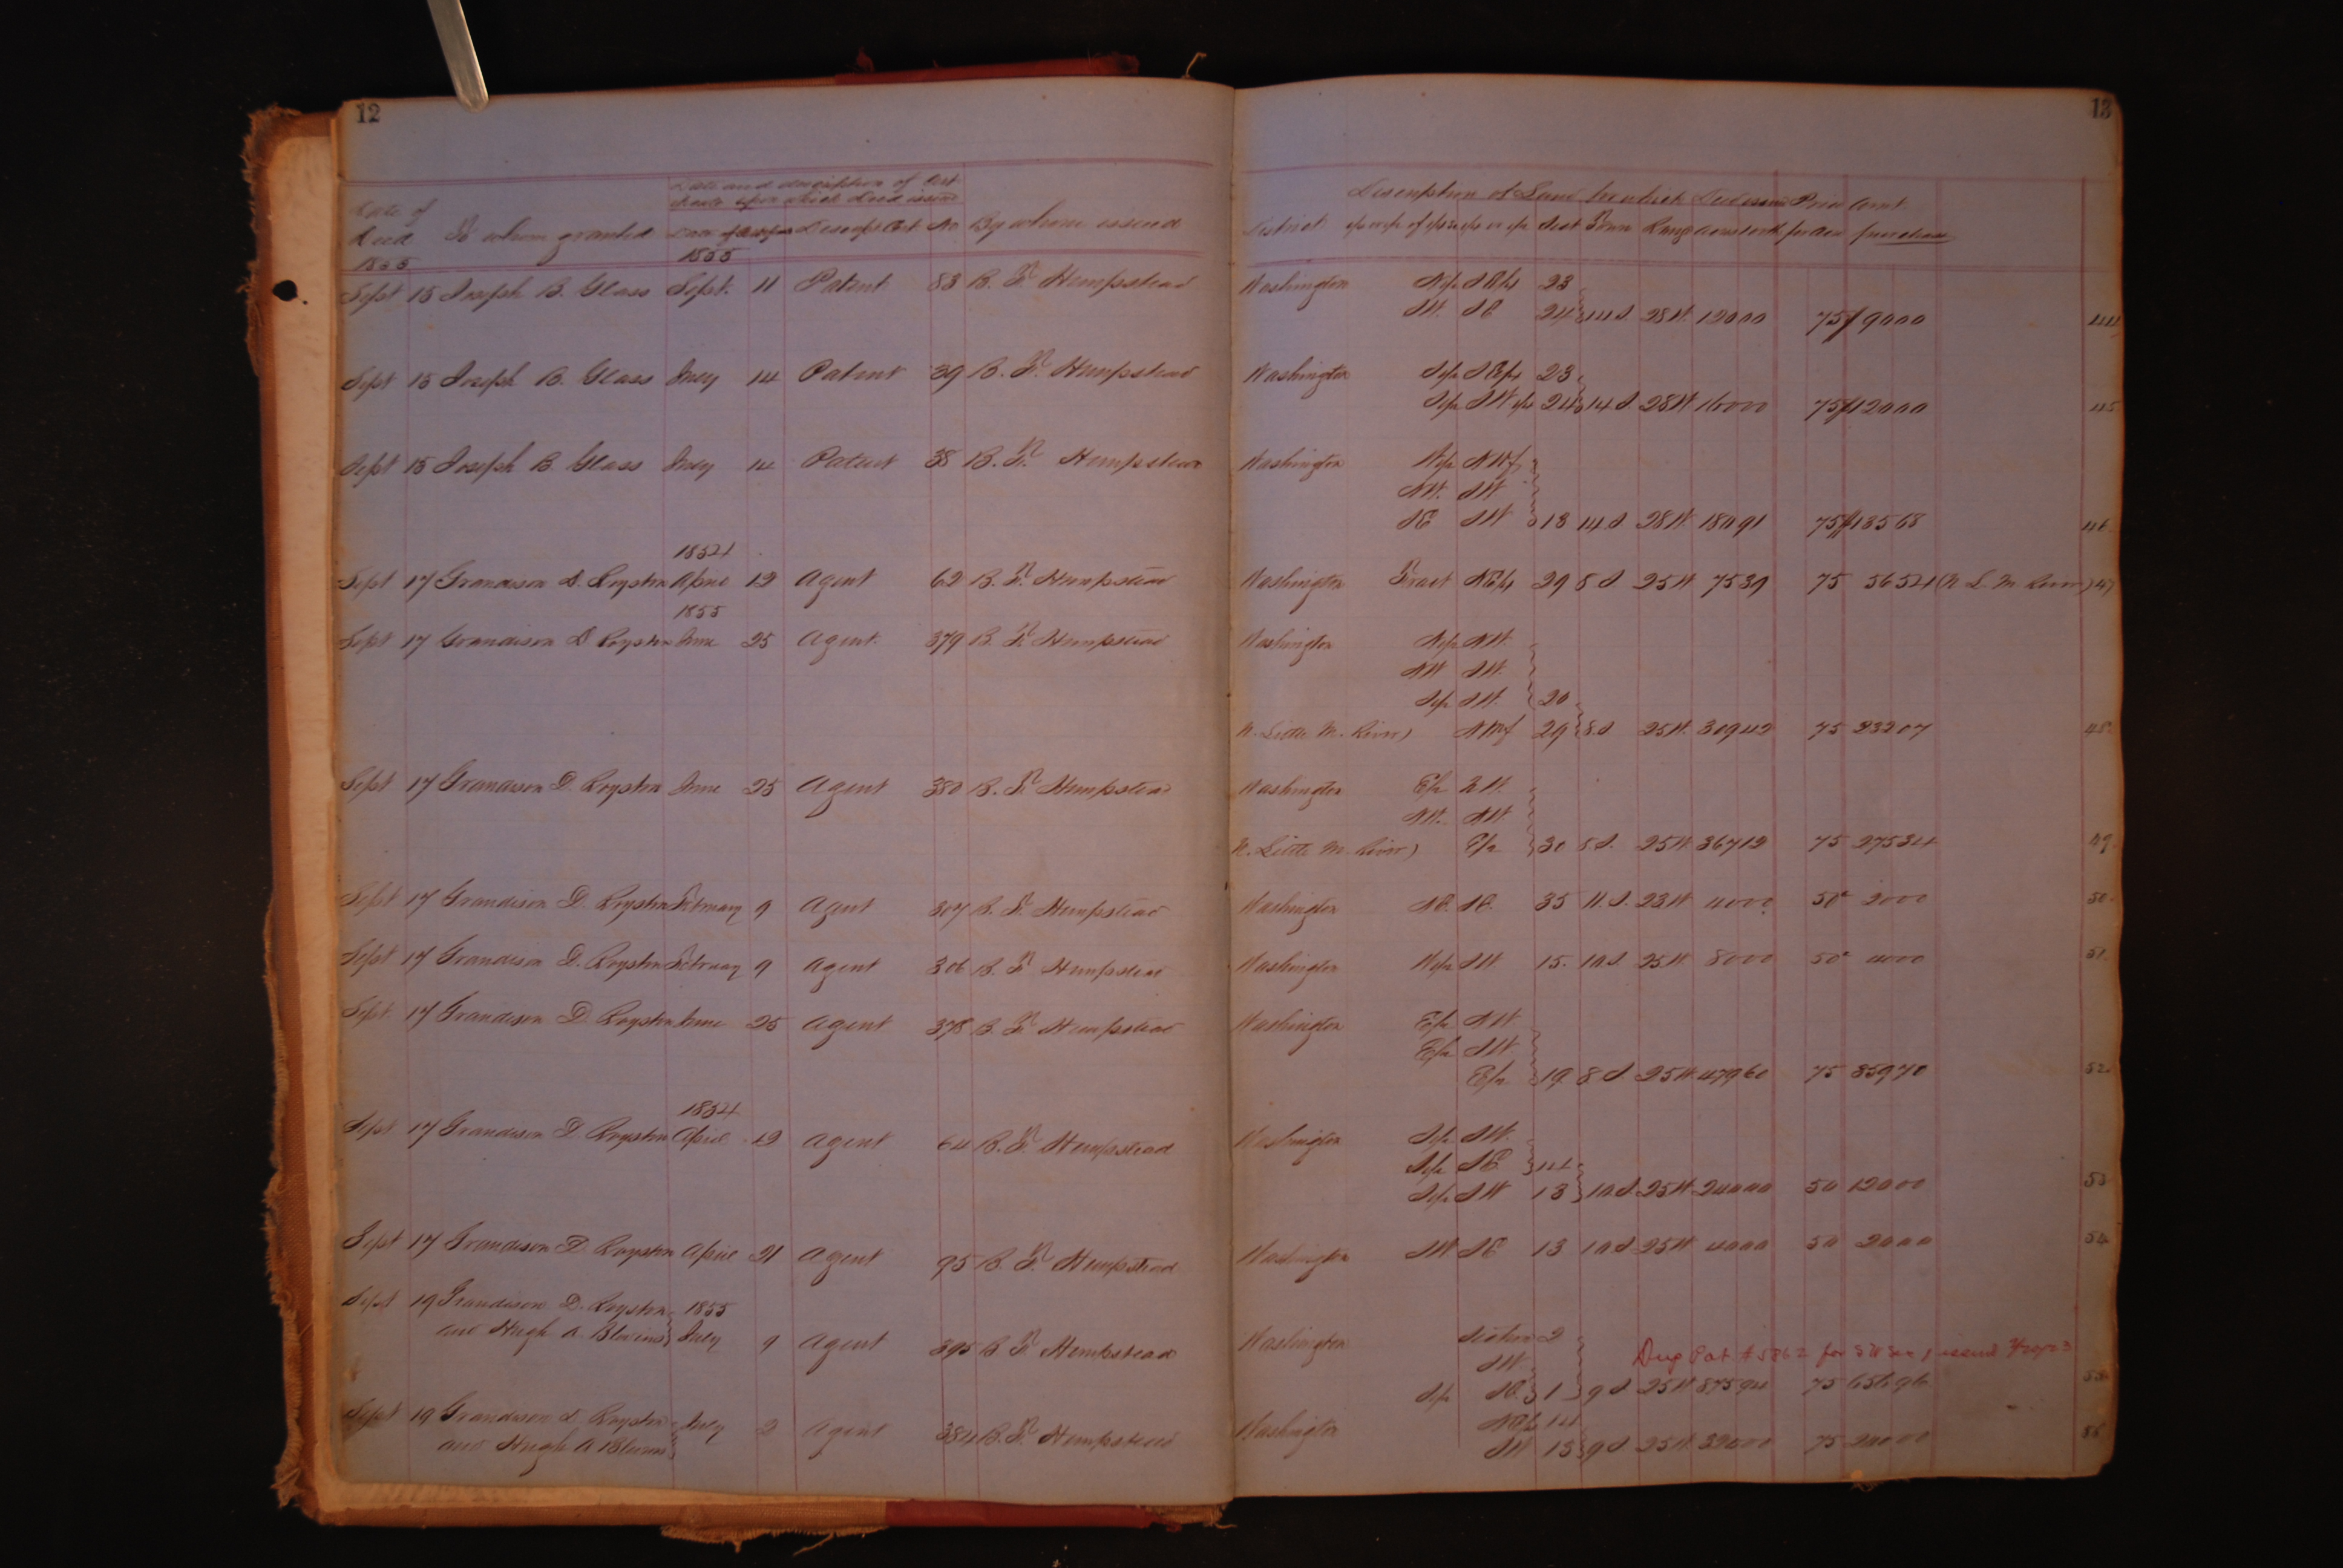 12
13
Date and description of Certificate upon which Deed issued
Date of Deed To whom granted Descript. Cert No By whom issued
1855 1855
Description of Land for which Deed issued Price Amt.
District Sect Town Range per Acre purchase
Sept 15 Joseph B. Glass Sept. 11 Patent 83 B. F. Hempstead Washington 23
SW. SE 24 14 S. 28 W. 120 00 75 90 00 44
Sept 15 Joseph B. Glass July 14 Patent 39 B. F. Hempstead Washington 23
24 14 S 28 W 160 00 75 120 00 45
Sept 15 Joseph B. Glass July 14 Patent 38 B. F. Hempstead Washington
NW. SW
SE SW 13 14 S 28 W 180 91 75 135 68 46
1854
Sept 17 Grandison D. Royston April 12 Agent 62 B. F. Hempstead Washington Fract 29 8 S 25 W 75 39 75 56 54 (N L. M. River) 47
1855
Sept 17 Grandison D Royston June 25 Agent. 379 B. F. Hempstead Washington NW.
NW SW.
SW. 20
N. Little M. River) 29 8 S 25 W. 309 42 75 232 07 48
Sept 17 Grandison D. Royston June 25 Agent 380 B. F. Hempstead Washington
NW. NW
N. Little M. River) 30 8 S. 25 W 367 12 75 275 34 49
Sept 17 Grandison D. Royston February 9 Agent 307 B. F. Hempstead Washington 35 11. S. 23 W 40 00 50 20 00 50
Sept 17 Grandison D. Royston February 9 Agent 306 B. F. Hempstead Washington SW. 15. 10 S. 25 W 80 00 50 40 00 51
Sept. 17 Grandison D. Royston June 25 Agent 378 B. F. Hempstead Washington NW
SW
19 8 S 25 W 479 60 75 359 70 52
1854
Sept 17 Grandison D. Royston April 12 Agent 64 B. F. Hempstead Washington SW.
SE 14
SW 13 10 S 25 W 240 00 50 120 00 53
Sept 17 Grandison D. Royston April 21 Agent 95 B. F. Hempstead Washington SW SE 13 10 S 25 W 40 00 50 20 00 54
Sept 19 Grandison D. Royston 1855
and Hugh A. Blevins July 9 Agent 395 B. F. Hempstead Washington Section 2
SW. Dup Pat # 5862 for SW Sec 1 issued
SE 1 9 S 25 W 875 94 75 656 96 55
Sept 19 Grandison D. Royston July 2 Agent 384 B. F. Hempstead Washington 14
and Hugh A Blevins SW 13 9 S 25 W 320 00 75 240 00 56